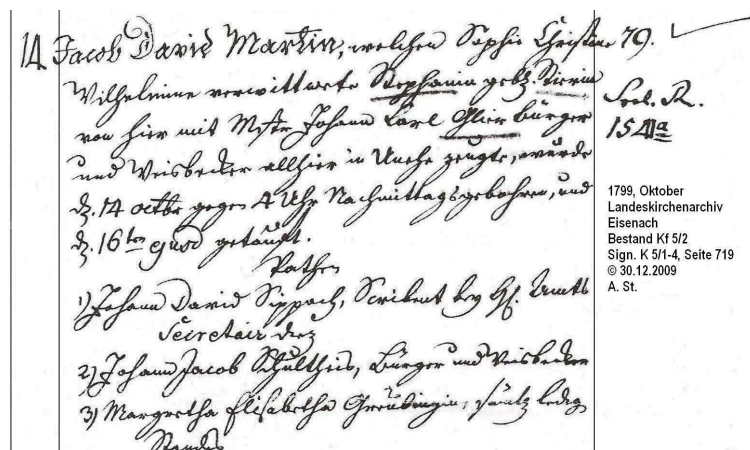 14 Jacob David Martin, welchen Sophie Christine 79.
Wilhelmine verwittwete Stephanin geb. Stierin
von hier mit Mstr Johann Carl Glier Bürger
und Weisbecker allhier in Unehe zeugte, wurde
d. 14 octbr gegen 4 Uhr Nachmittags gebohren, und
d. 16ten ejusd getauft.
Pathen
1) Johann David Sippach, Scribent bey H. Amts
Secretair
2) Johann Jacob Schultheis, Bürger und Weisbecker
3) Margretha Elisabetha ledig
Standes
154a
1799, Oktober
Landeskirchenarchiv
Eisenach
Bestand Kf 5/2
Sign. K 5/1-4, Seite 719
© 30.12.2009
A. St.